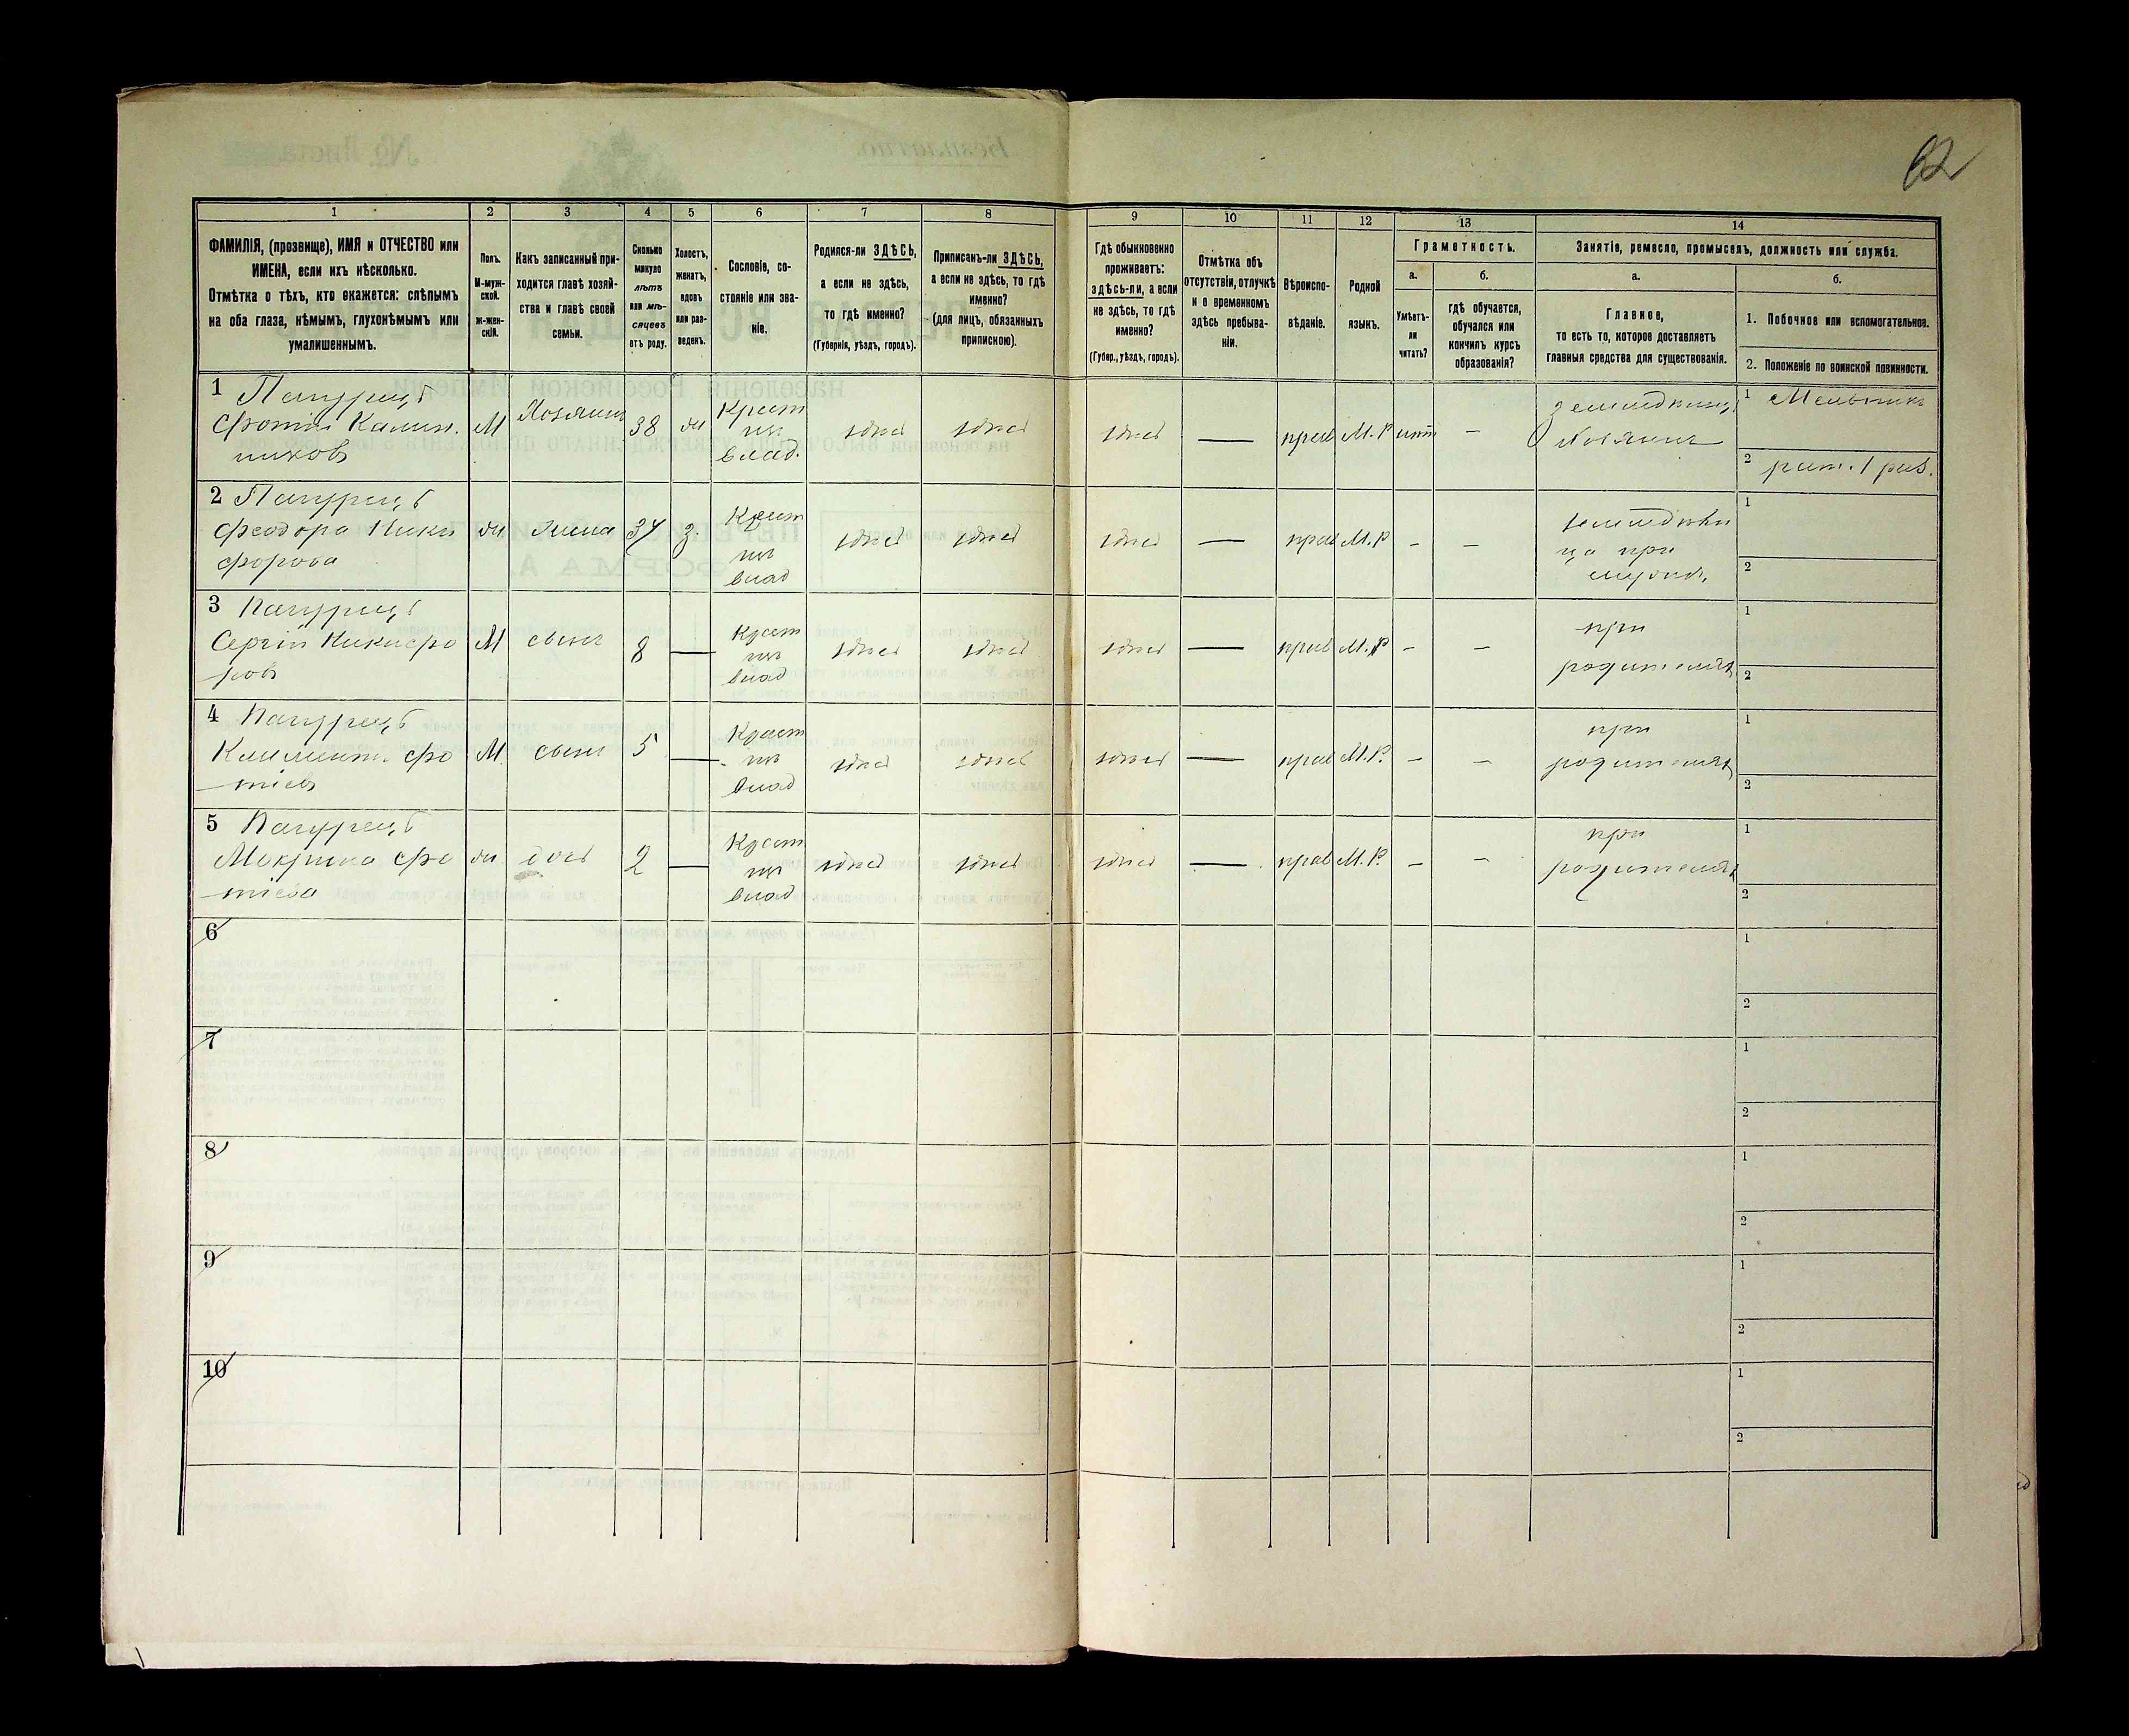 62
1 2 3 4 5 6 7 8 9 10 11 12 13 14
ФАМИЛІЯ, (прозвище), ИМЯ и ОТЧЕСТВО или
ИМЕНА, если ихъ нѣсколько.
Отмѣтка о тѣхъ, кто окажется: слѣпымъ
на оба глаза, нѣмымъ, глухонѣмымъ или
умалишеннымъ.
Полъ.
М-муж-
ской.
ж-жен-
скій.
Какъ записанный при-
ходится главѣ хозяй-
ства и главѣ своей
семьи.
Сколько
минуло
лѣтъ
или мѣ-
сяцевъ
отъ роду.
Холостъ,
женатъ,
вдовъ
или раз-
веденъ.
Сословіе, со-
стояніе или зва-
ніе.
Родился-ли ЗДѢСЬ,
а если не здѣсь,
то гдѣ именно?
(Губернія, уѣздъ, городъ).
Приписанъ-ли ЗДѢСЬ,
а если не здѣсь, то гдѣ
именно?
(для лицъ, обязанныхъ
припискою).
Гдѣ обыкновенно
проживаетъ:
здѣсь-ли, а если
не здѣсь, то гдѣ
именно?
(Губер., уѣздъ, городъ).
Отмѣтка объ
отсутствіи, отлучкѣ
и о временномъ
здѣсь пребыва-
ніи.
Вѣроиспо-
вѣданіе.
Родной
языкъ.
Грамотность.
а.
Умѣетъ-
ли
читать?
б.
гдѣ обучается,
обучался или
кончилъ курсъ
образованія?
Занятіе, ремесло, промыселъ, должность или служба.
а.
Главное,
то есть то, которое доставляетъ
главныя средства для существованія.
б.
1. Побочное или вспомогательное.
2. Положеніе по воинской повинности.
1
Фотій
М
Хозяинъ
38
ж
Крест
влад.
здѣсь
здѣсь
здѣсь
—
прав
М. Р
нѣт
—
Хозяинъ
1 Мельникъ
2 рат. 1 раз.
2
Феодора Ники
форова
ж
жена
34
з.
Крест
влад
здѣсь
здѣсь
здѣсь
—
прав
М. Р
—
—
ца при
мужѣ
1
2
3
Сергій Никифо
ровъ
М
сынъ
8
—
Крест
влад
здѣсь
здѣсь
здѣсь
—
прав
М. Р
—
—
при
родителяхъ
1
2
4
Климентъ Фо
тіевъ
М
сынъ
5
—
Крест
влад
здѣсь
здѣсь
здѣсь
—
прав
М. Р.
—
—
при
родителяхъ
1
2
5
Макрина Фо
тіева
ж
дочь
2
—
Крест
влад
здѣсь
здѣсь
здѣсь
—
прав
М. Р.
—
—
при
родителяхъ
1
2
6
1
2
7
1
2
8
1
2
9
1
2
10
1
2